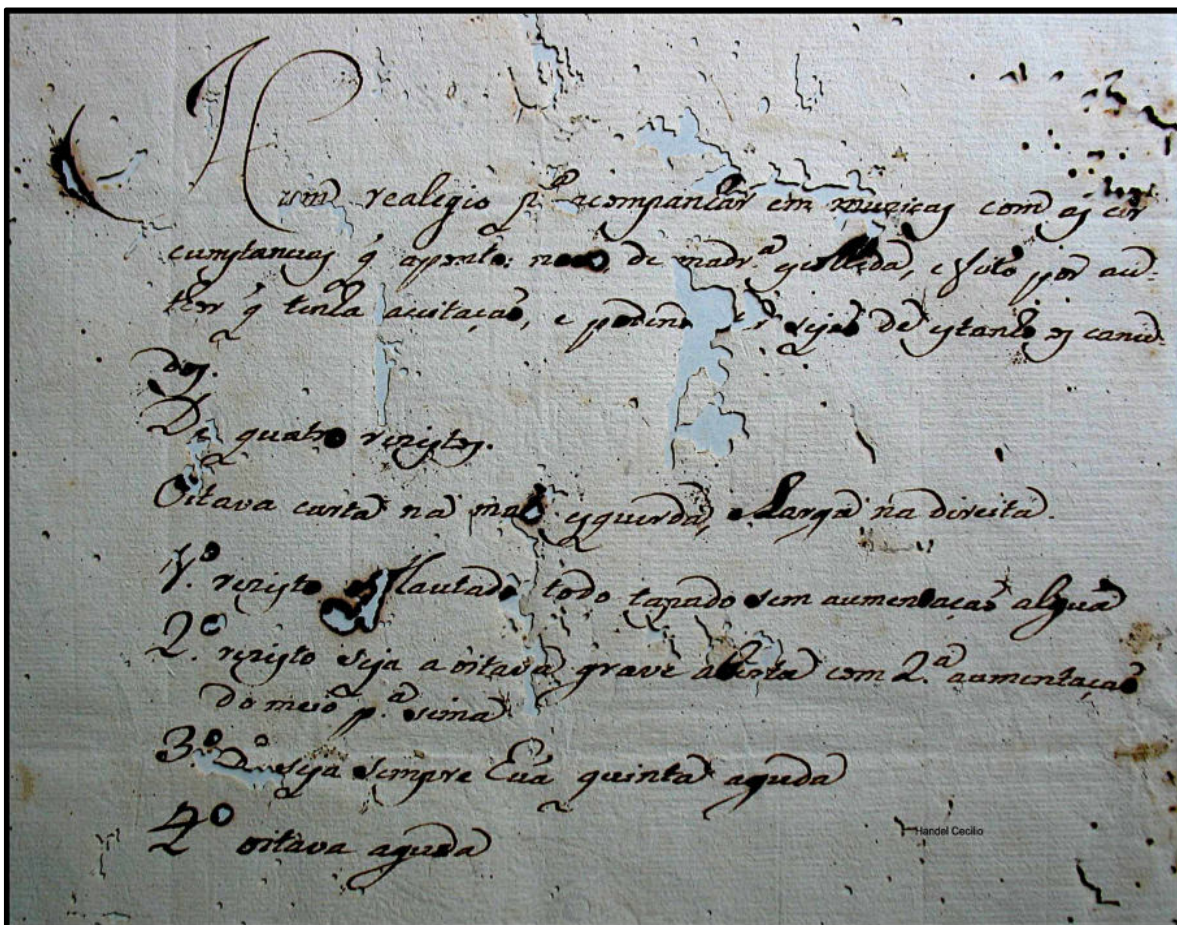 Hum realegio p.ª acompanhar em muzicas com as cir
cunstancias q̃ aponto: novo, de madr.ª escolhida, e feito por au-
thor q̃ tenha aceitação, e podendo ser sejão de estanho os canu-
dos.
De quatro rezistos.
Oitava curta na mão esquerda, e larga na direita.
1.º rezisto Flautado todo tapado sem aumentação algũa
2.º rezisto seja a oitava grave aberta com 2.ª aumentação
do meio p.ª sima
3.º D.º seja sempre hũa quinta aguda
4.º oitava aguda
Handel Cecilio